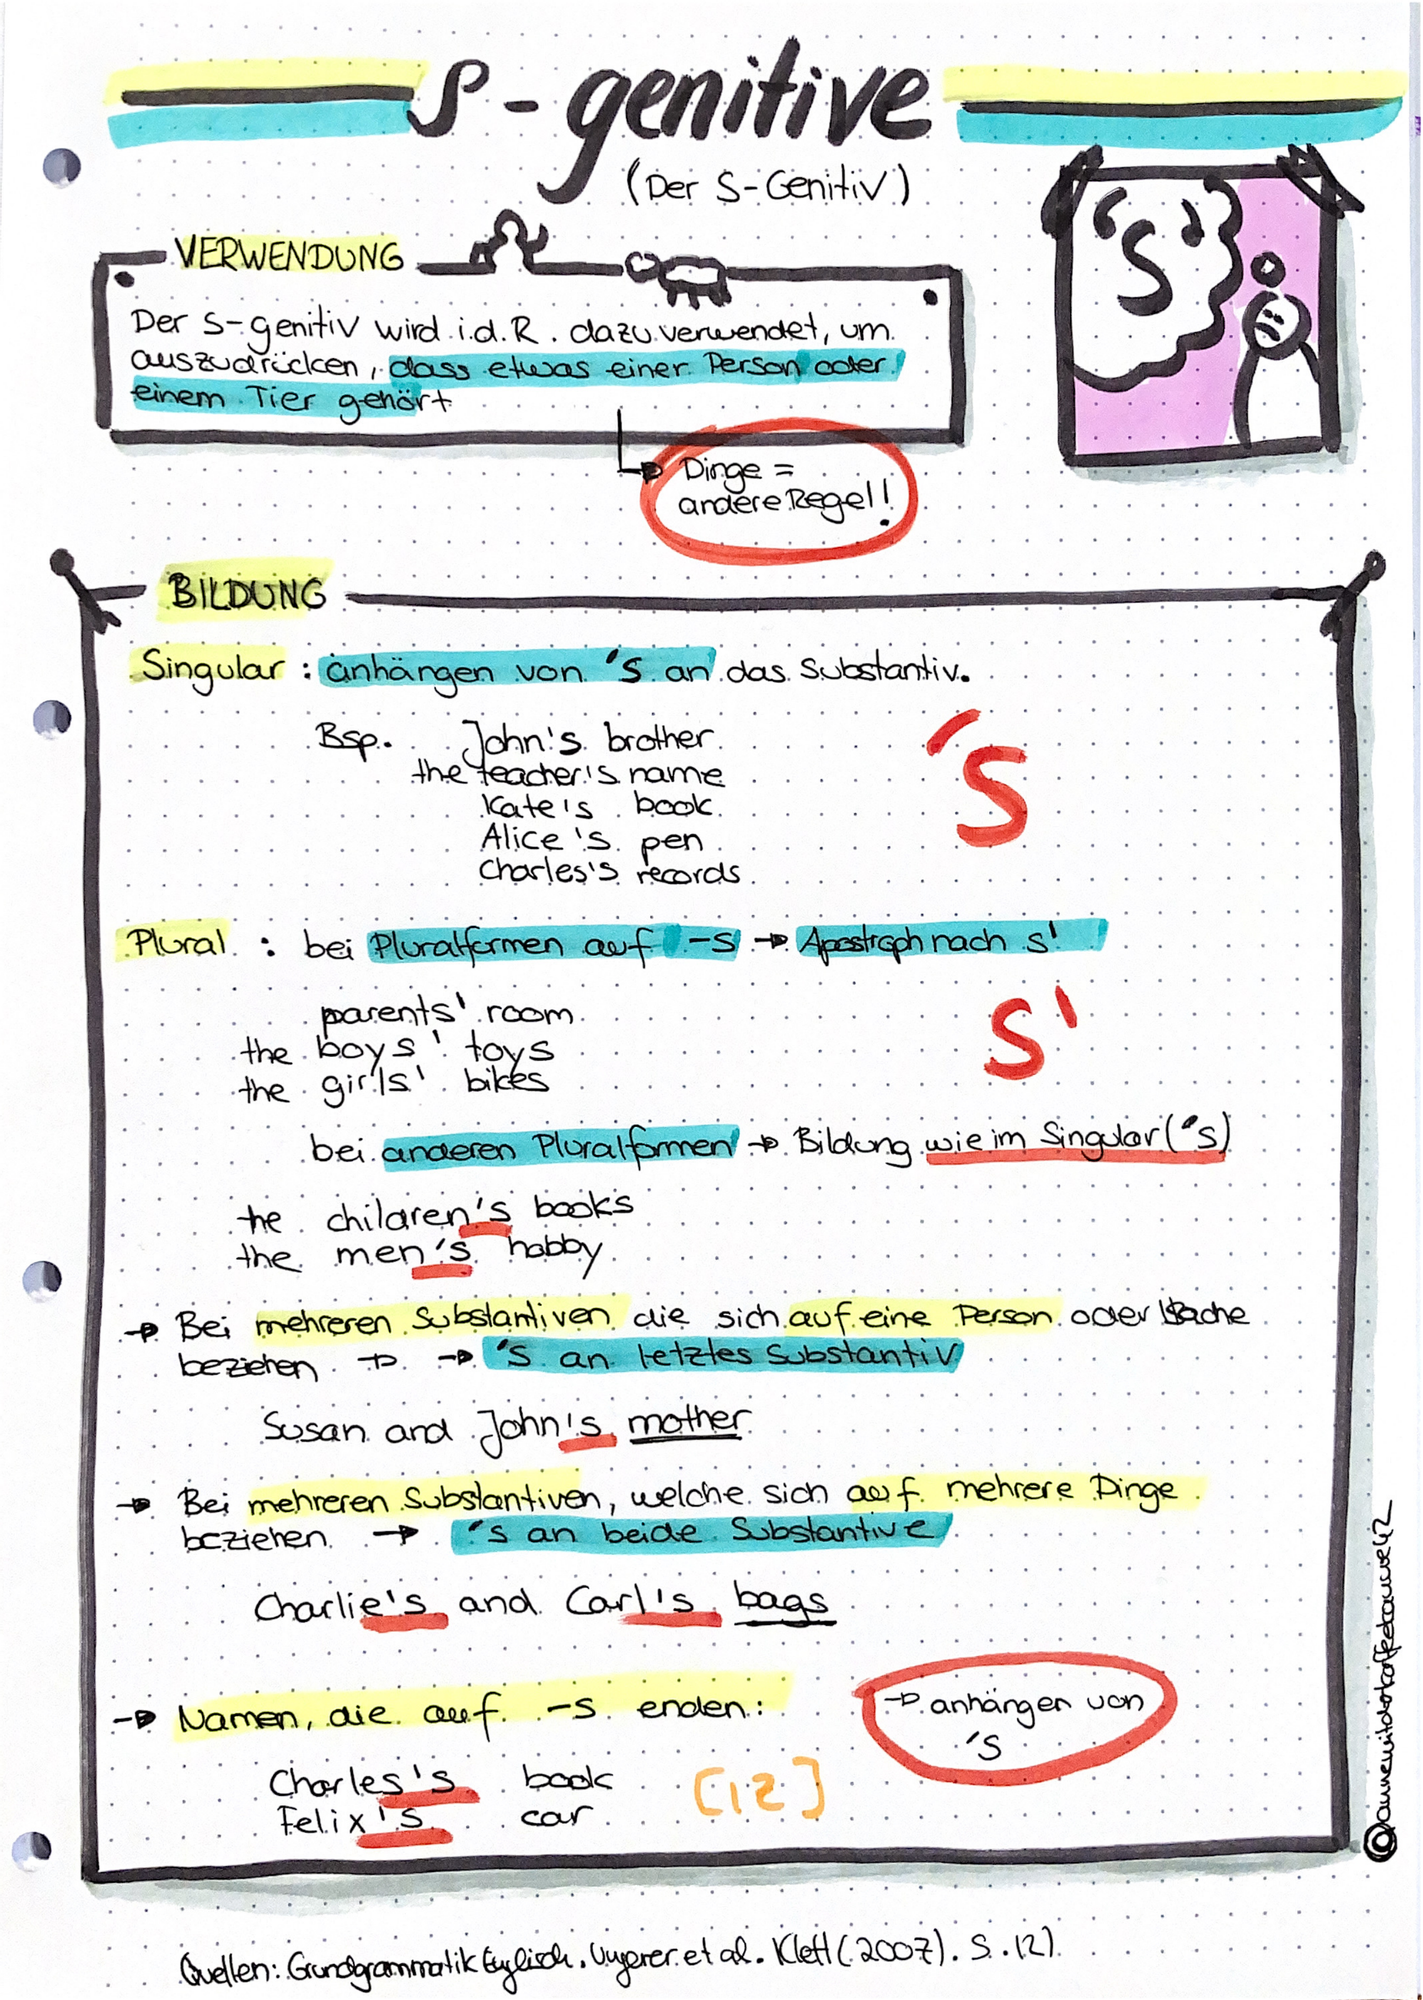 s-genitive
(Der S-Genitiv)
's'
VERWENDUNG
Der S-genitiv wird i.d.R. dazu verwendet, um
auszudrücken, dass etwas einer Person oder
einem Tier gehört
→ Dinge =
andere Regel!
BILDUNG
Singular : anhängen von 's an das Substantiv.
Bsp. John's brother
the teacher's name
Kate's book
Alice's pen
Charles's records
's
Plural : bei Pluralformen auf -s → Apostroph nach s'
parents' room
the boys' toys
the girls' bikes
s'
bei anderen Pluralformen → Bildung wie im Singular ('s)
the children's books
the men's hobby
→ Bei mehreren Substantiven die sich auf eine Person oder Sache
beziehen → → 's an letztes Substantiv
Susan and John's mother
→ Bei mehreren Substantiven, welche sich auf mehrere Dinge
beziehen → 's an beide Substantive
Charlie's and Carl's bags
→ Namen, die auf -s enden:
→ anhängen von
's
Charles's book
Felix's car
[ız]
Quellen: Grundgrammatik Englisch. Ungerer et al. Klett (2007). S. 121